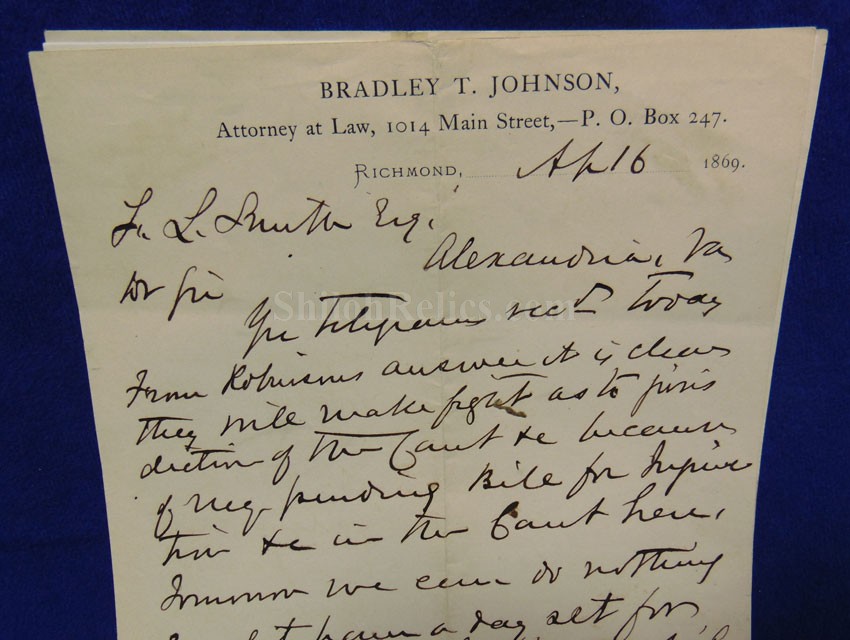 BRADLEY T. JOHNSON,
Attorney at Law, 1014 Main Street,—P. O. Box 247.
RICHMOND, Ap 16 1869.
F. L. Smith Esq.
Alexandria, Va
Dr Sir
Yr telegram recd today
ShilohRelics.com
From Robinsons answer it is clear
they will make fight as to juris
diction of the Court &c because
of my pending Bill for Injunc
tion &c in the Court here.
Tomorrow we can do nothing
have a day set for